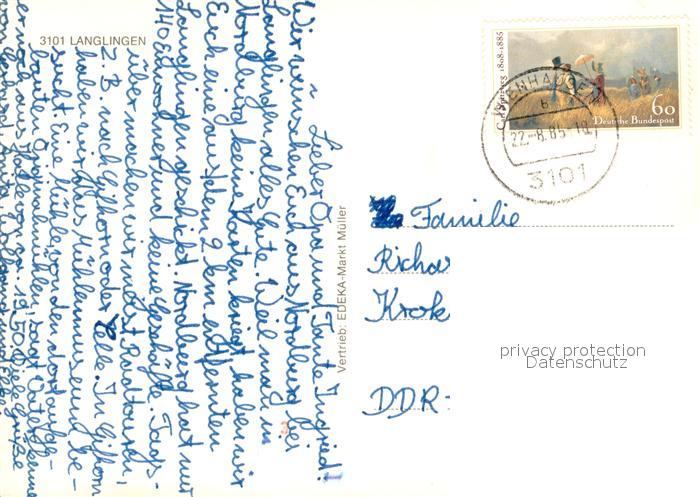 3101 LANGLINGEN
Lieber Opa und Tante Ingried!
Wir wünschen Euch aus Nordburg bei
Langlingen alles Gute. Weil man in
Nordburg keine Karten kriegt, haben wir
Euch eine aus dem 2 km entfernten
Langlingen geschickt. Nordburg hat nur
140 Einwohner und keine Geschäfte. Tags-
über machen wir meist Radtouren,
z. B. nach Gifhorn oder Celle. In Gifhorn
haben wir das Mühlenmuseum be-
sucht. Eine Mühle von den dort aufge-
bauten
Vertrieb: EDEKA-Markt Müller
Carl Spitzweg 1808-1885
60
Deutsche Bundespost
22.-8.85-18
3101
Familie
Richar
Krok
DDR-
privacy protection
Datenschutz